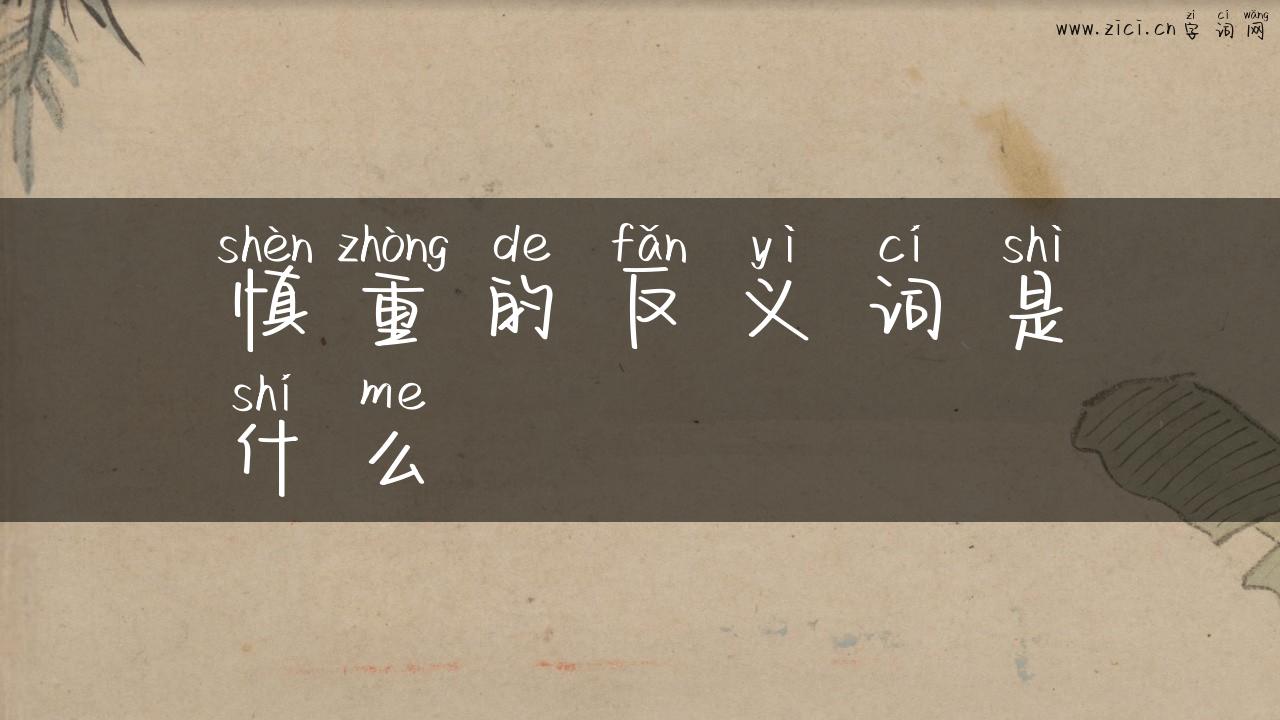 zì cí wǎng
www.zici.cn 字词网
shèn zhòng de fǎn yì cí shì
慎重的反义词是
shí me
什么